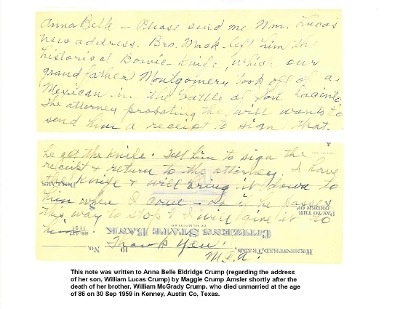 Anna Belle — Please send me Wm. Lucas'
new address. Bro. Mack left him the
historical Bowie knife which our
grandfather Montgomery took off of a
Mexican in the battle of San Jacinto
The attorney probating the will wants to
send him a receipt to sign that
he got the knife. Tell him to sign the
receipt & return to the attorney. I have
the knife & will bring it down to
when I come
this way to stop & I will give it to
him.
Thank you.
M.C.A.
CITIZENS STATE BANK
This note was written to Anna Belle Eldridge Crump (regarding the address
of her son, William Lucas Crump) by Maggie Crump Amsler shortly after the
death of her brother, William McGrady Crump, who died unmarried at the age
of 86 on 30 Sep 1959 in Kenney, Austin Co, Texas.